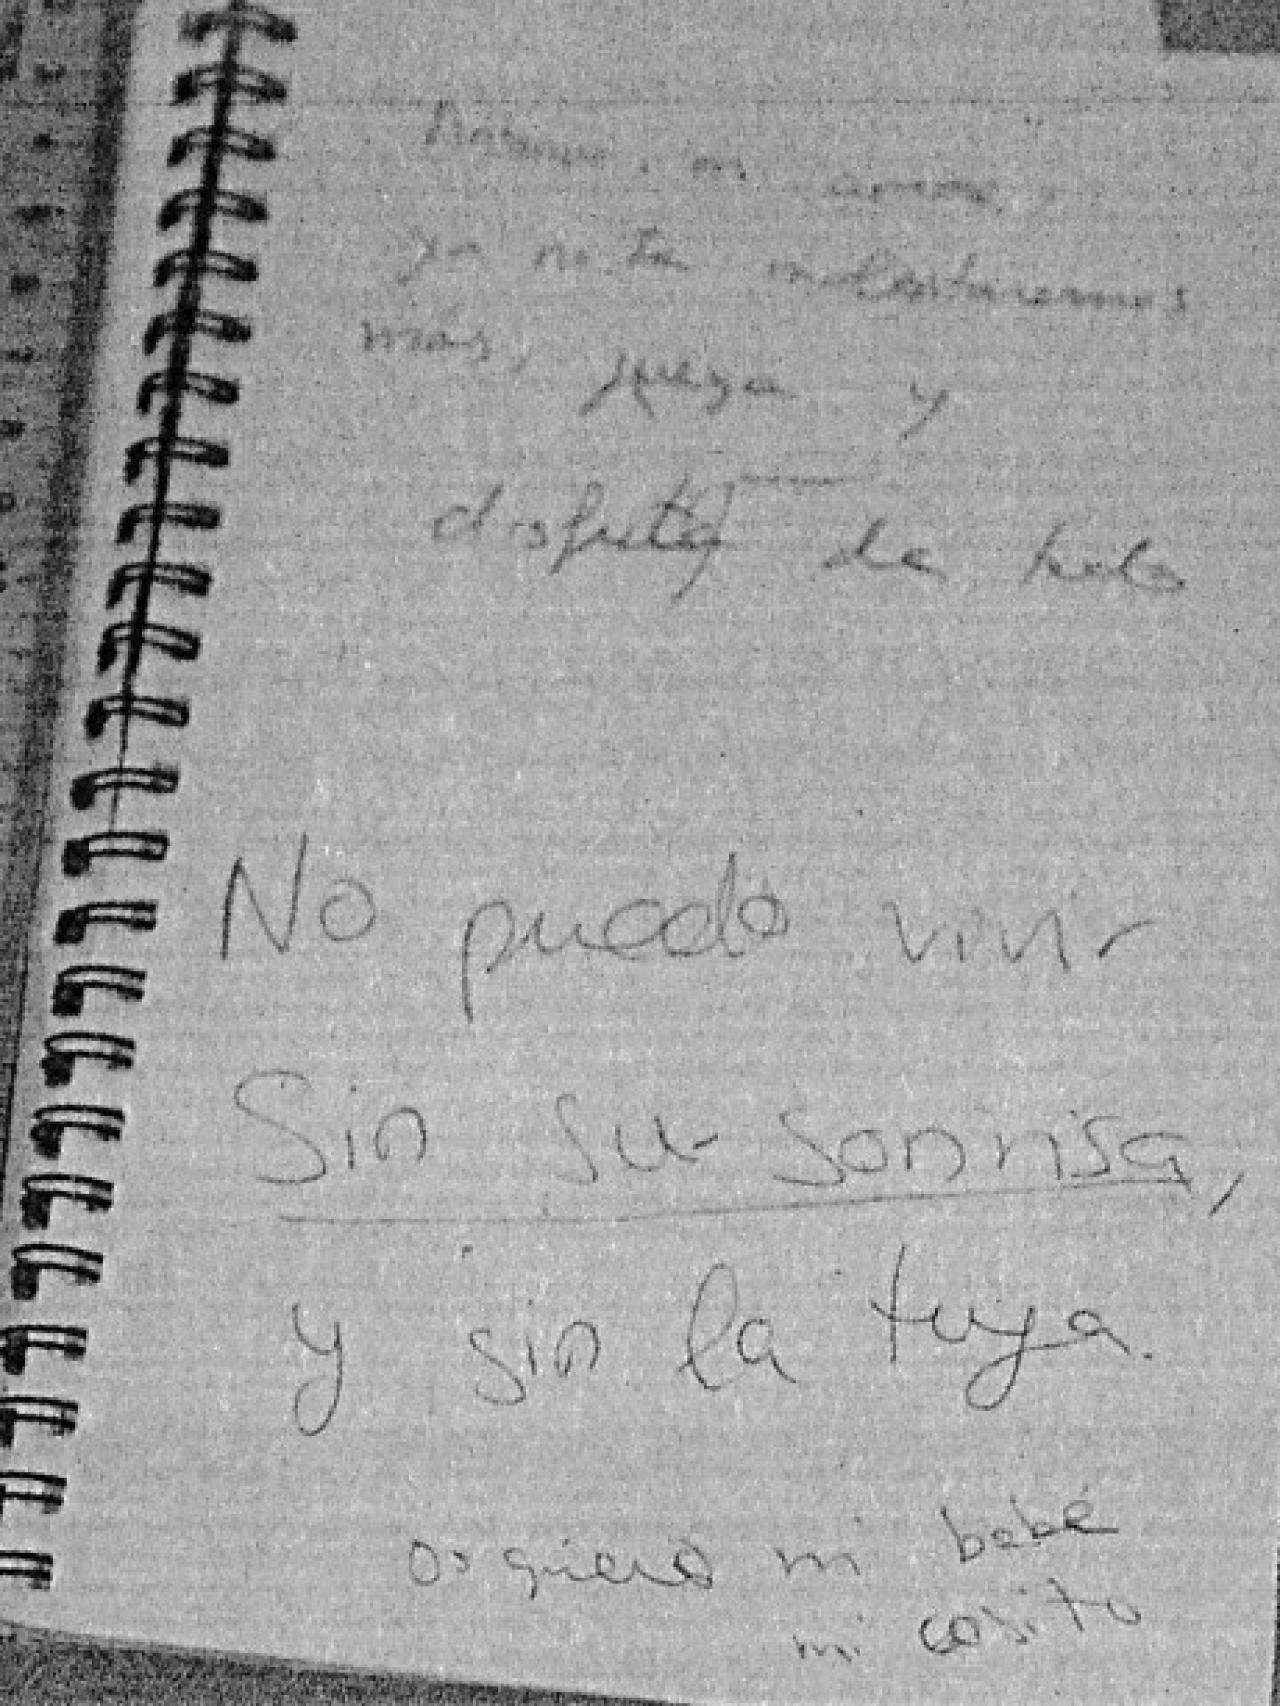 mi amor,
ya no te molestaremos
más, juega y
disfruta de todo
No puedo vivir
Sin su sonrisa,
y sin la tuya.
os quiero mi bebé
mi cosito